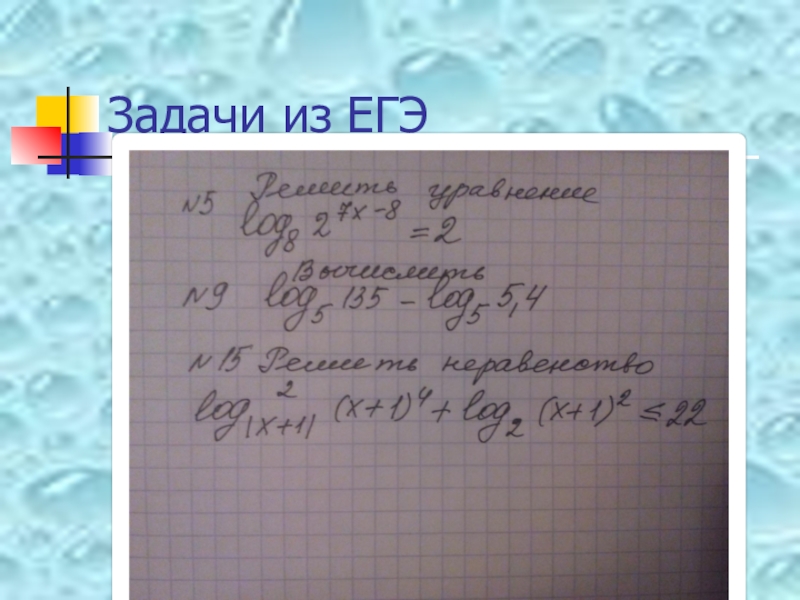 Задачи из ЕГЭ
№5 Решить уравнение
log₈ 2^(7x-8) = 2
Вычислить
№9 log₅ 135 - log₅ 5,4
№15 Решить неравенство
log²_|x+1| (x+1)⁴ + log₂ (x+1)² ≤ 22